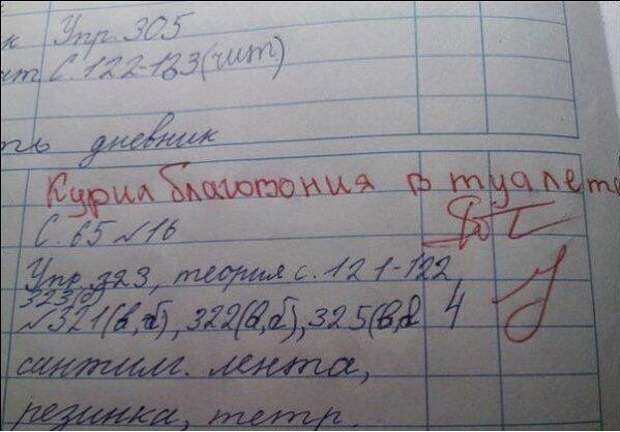 к Упр. 305
ит С. 122-123 (чит.)
ть дневник
Курил благовония в туалете
С. 65 №16
Упр. 323, теория с. 121-122
323(б)
№321(в,б), 322(в,б), 325(в, 4
сантим. лента,
резинка, тетр.